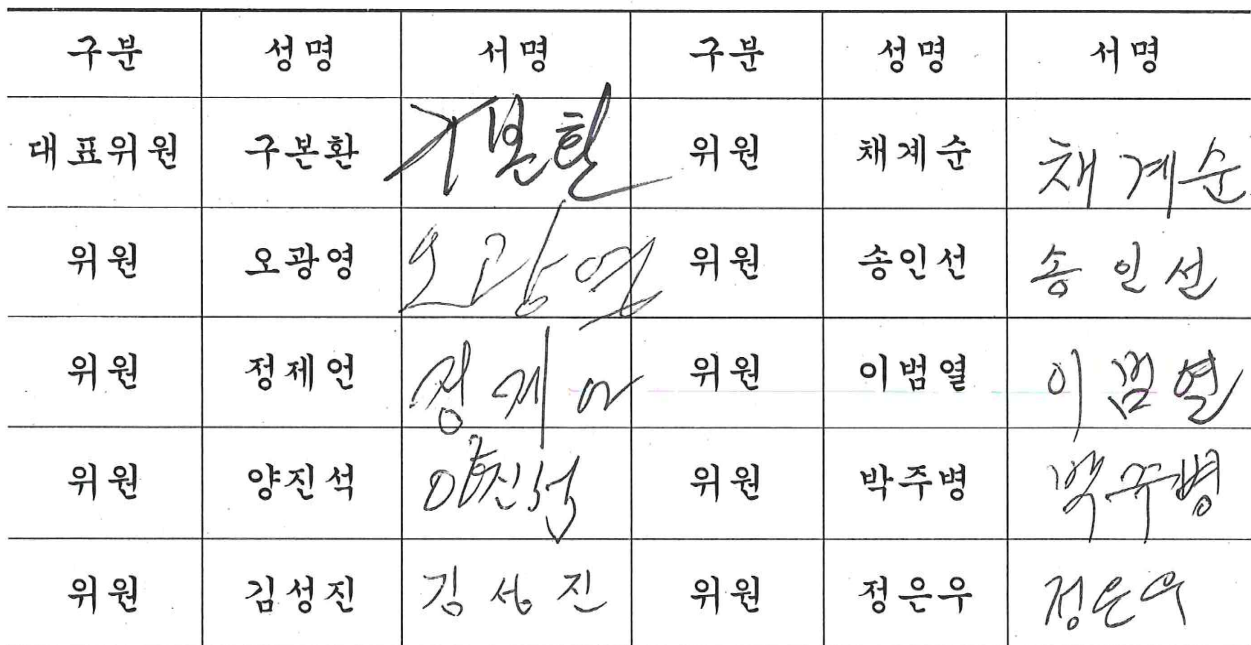 구분 성명 서명 구분 성명 서명
대표위원 구본환 구본환 위원 채계순 채계순
위원 오광영 오광영 위원 송인선 송인선
위원 정제언 정제언 위원 이범열 이범열
위원 양진석 양진석 위원 박주병 박주병
위원 김성진 김성진 위원 정은우 정은우